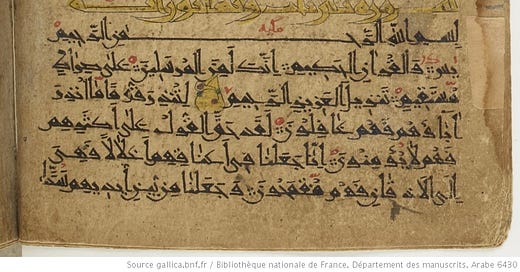 سورة
مكية
بسم الله الرحمن الرحيم
يس والقران الحكيم انك لمن المرسلين على صراط
مستقيم تنزيل العزيز الرحيم لتنذر قوما ما انذر
اباؤهم فهم غافلون لقد حق القول على اكثرهم
فهم لا يؤمنون انا جعلنا في اعناقهم اغلالا فهي
الى الاذقان فهم مقمحون وجعلنا من بين ايديهم سدا
Source gallica.bnf.fr / Bibliothèque nationale de France. Département des manuscrits. Arabe 6430